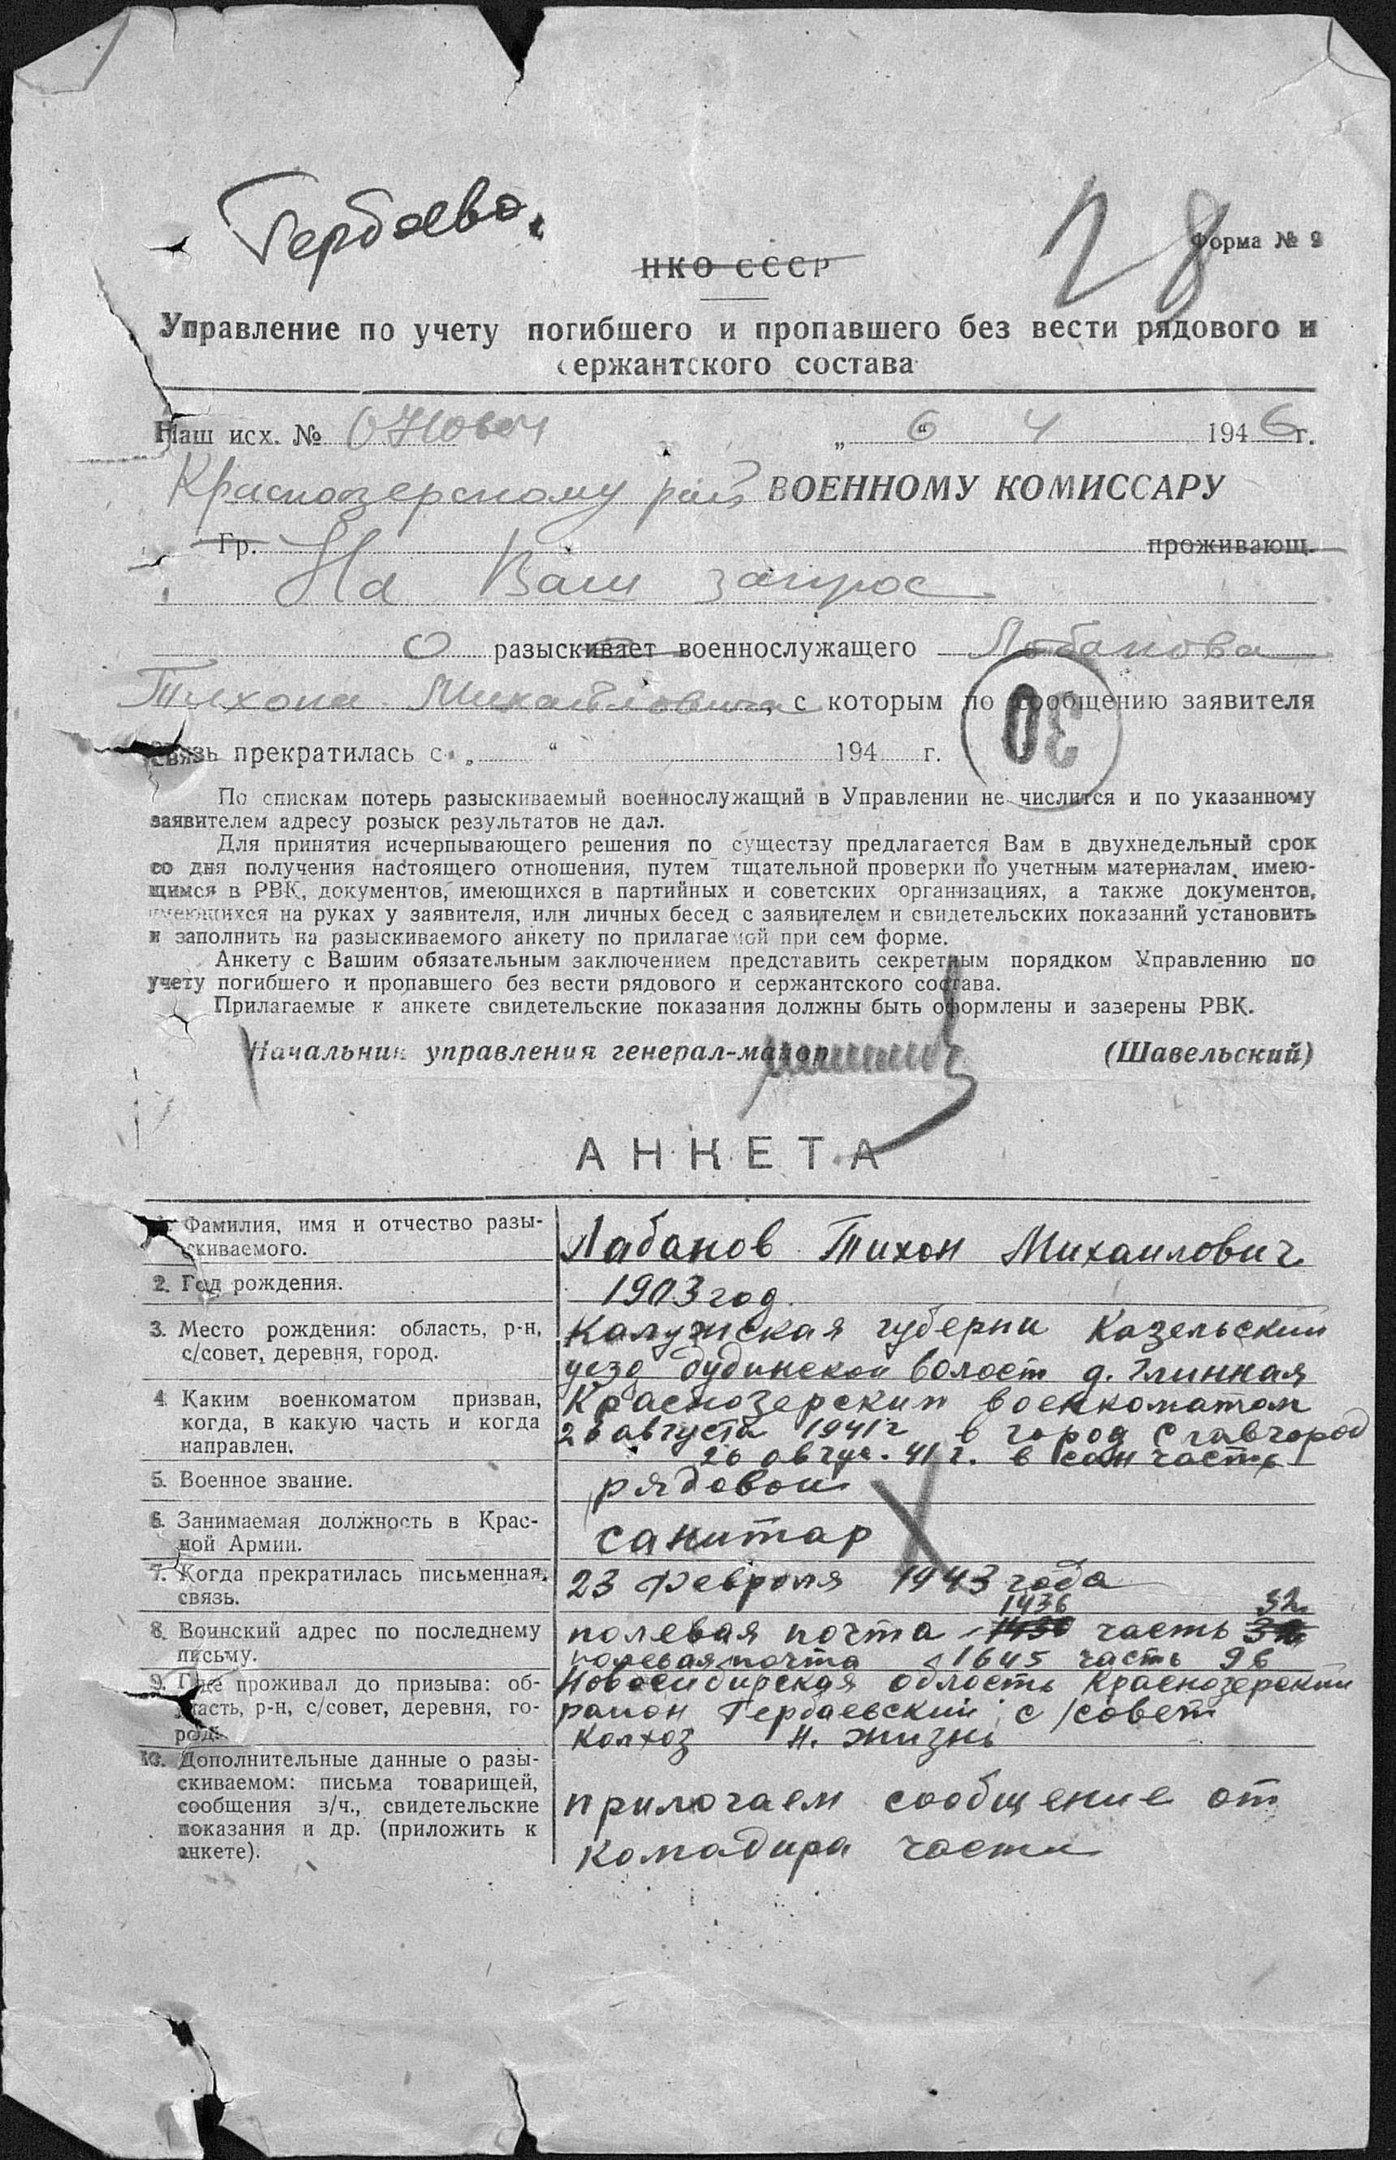 Гербаево.
28
Форма № 9
НКО СССР
Управление по учету погибшего и пропавшего без вести рядового и
сержантского состава
Наш исх. №
„ 6 “ 4 1946 г.
Краснозерскому рай ВОЕННОМУ КОМИССАРУ
Гр. проживающ.
На Ваш запрос
О разыскивает военнослужащего Лобанова
Тихона Михайловича, с которым по сообщению заявителя
30
связь прекратилась с „ “ 194 г.
По спискам потерь разыскиваемый военнослужащий в Управлении не числится и по указанному
заявителем адресу розыск результатов не дал.
Для принятия исчерпывающего решения по существу предлагается Вам в двухнедельный срок
со дня получения настоящего отношения, путем тщательной проверки по учетным материалам, имею-
щимся в РВК, документов, имеющихся в партийных и советских организациях, а также документов,
имеющихся на руках у заявителя, или личных бесед с заявителем и свидетельских показаний установить
и заполнить на разыскиваемого анкету по прилагаемой при сем форме.
Анкету с Вашим обязательным заключением представить секретным порядком Управлению по
учету погибшего и пропавшего без вести рядового и сержантского состава.
Прилагаемые к анкете свидетельские показания должны быть оформлены и заверены РВК.
Начальник управления генерал-майор (Шавельский)
АНКЕТА
1. Фамилия, имя и отчество разы-
скиваемого.
Лабанов Тихон Михаилович
2. Год рождения.
1903 год.
3. Место рождения: область, р-н,
с/совет, деревня, город.
Калужская губерни Казельский
уезд Будинской волост д. Глинная
4. Каким военкоматом призван,
когда, в какую часть и когда
направлен.
Краснозерским военкоматом
26 августа 1941 г в город Славгород
26 авгус. 41 г. в сан часть
5. Военное звание.
рядовой
6. Занимаемая должность в Крас-
ной Армии.
санитар
7. Когда прекратилась письменная
связь.
23 февроля 1943 года
8. Воинский адрес по последнему
письму.
1436 32
полевая почта часть
полевая почта 1645 часть 96
9. Где проживал до призыва: об-
ласть, р-н, с/совет, деревня, го-
род.
Новосибирская область Краснозерский
район Гербаевский с/совет
колхоз Н. жизнь
10. Дополнительные данные о разы-
скиваемом: письма товарищей,
сообщения з/ч., свидетельские
показания и др. (приложить к
анкете).
прилогаем сообщение от
комадира части